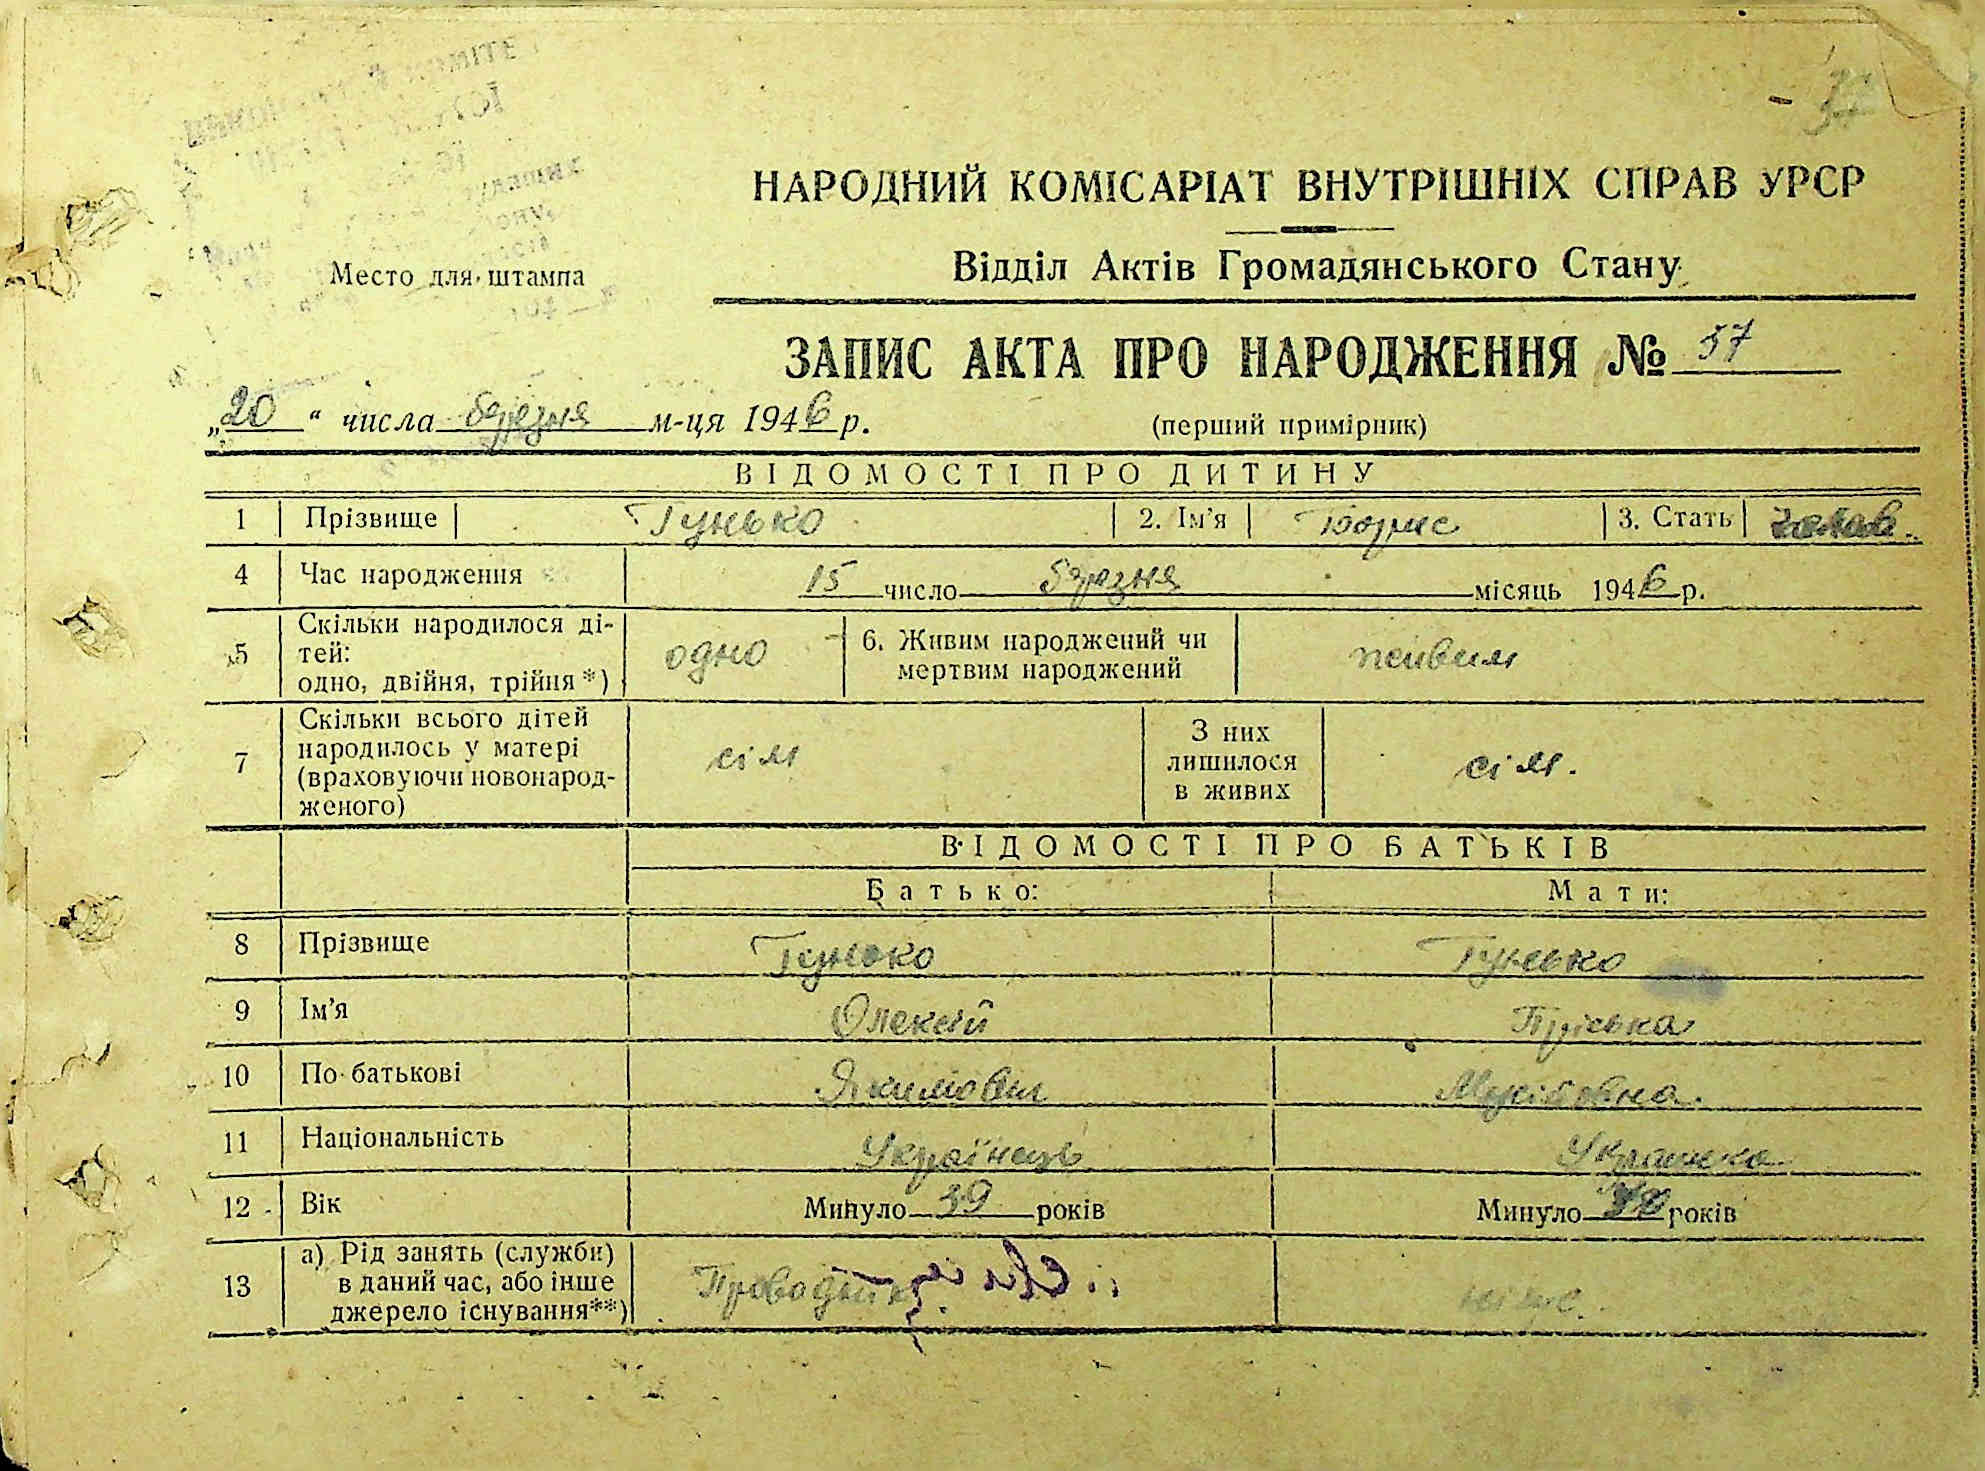 НАРОДНИЙ КОМІСАРІАТ ВНУТРІШНІХ СПРАВ УРСР
Место для штампа
Відділ Актів Громадянського Стану
ЗАПИС АКТА ПРО НАРОДЖЕННЯ № 37
„20“ числа березня м-ця 1946 р.
(перший примірник)
ВІДОМОСТІ ПРО ДИТИНУ
1 Прізвище Гунько 2. Ім'я Борис 3. Стать
4 Час народження 15 число березня місяць 1946 р.
5 Скільки народилося ді-
тей:
одно, двійня, трійня*) одно
6. Живим народжений чи
мертвим народжений живим
7 Скільки всього дітей
народилось у матері
(враховуючи новонарод-
женого) сім
З них
лишилося
в живих сім.
ВІДОМОСТІ ПРО БАТЬКІВ
Батько: Мати:
8 Прізвище Гунько Гунько
9 Ім'я Олексій Пріська
10 По батькові Якимович
11 Національність Українець Українка
12 Вік Минуло 39 років Минуло років
13 а) Рід занять (служби)
в даний час, або інше
джерело існування**) Проводник